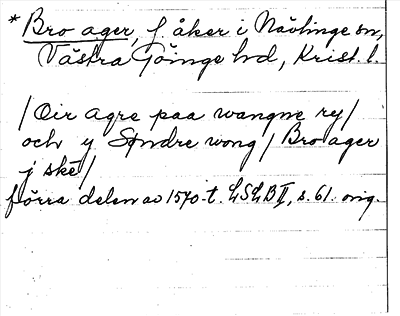 * Bro ager, f. åker i Nävlinge sn,
Västra Göinge hd, Krist. l.
/ Oir agre paa wangne ry /
och y Søndre wong / Bro ager
j ske /
förra delen av 1570-t. LSLB II, s. 61. orig.